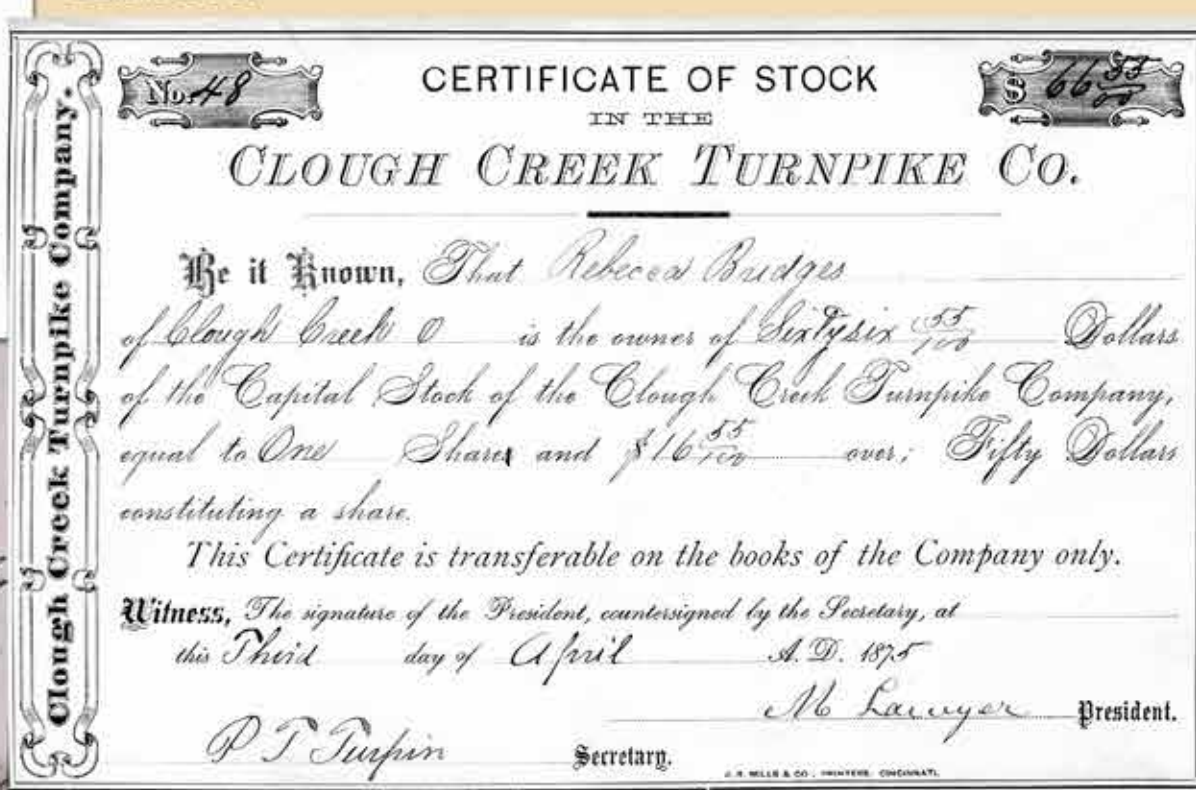 Clough Creek Turnpike Company.
No. 48
CERTIFICATE OF STOCK
$ 66 55/00
IN THE
CLOUGH CREEK TURNPIKE CO.
Be it Known, That Rebecca Bridges
of Clough Creek O is the owner of Sixtysix 55/100 Dollars
of the Capital Stock of the Clough Creek Turnpike Company,
equal to One Share and $16 55/100 over; Fifty Dollars
constituting a share.
This Certificate is transferable on the books of the Company only.
Witness, The signature of the President, countersigned by the Secretary, at
this Third day of April A.D. 1875
M Lawyer President.
P T Turpin Secretary.
J. R. MILLS & CO., PRINTERS, CINCINNATI.